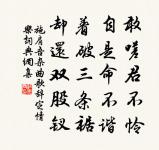 敢嗟君不怜
自是命不谐
着破三条裾
却還双股釵
施肩吾杂曲歌辞定情
樂詞典網集